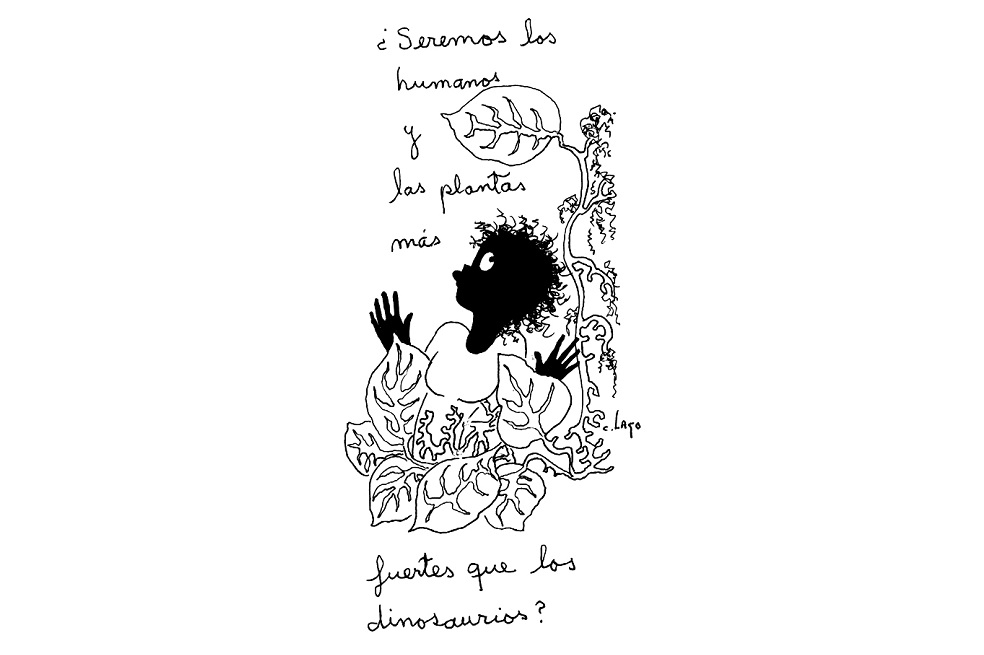 ¿Seremos los
humanos
y
las plantas
más
c. Lago
fuertes que los
dinosaurios?